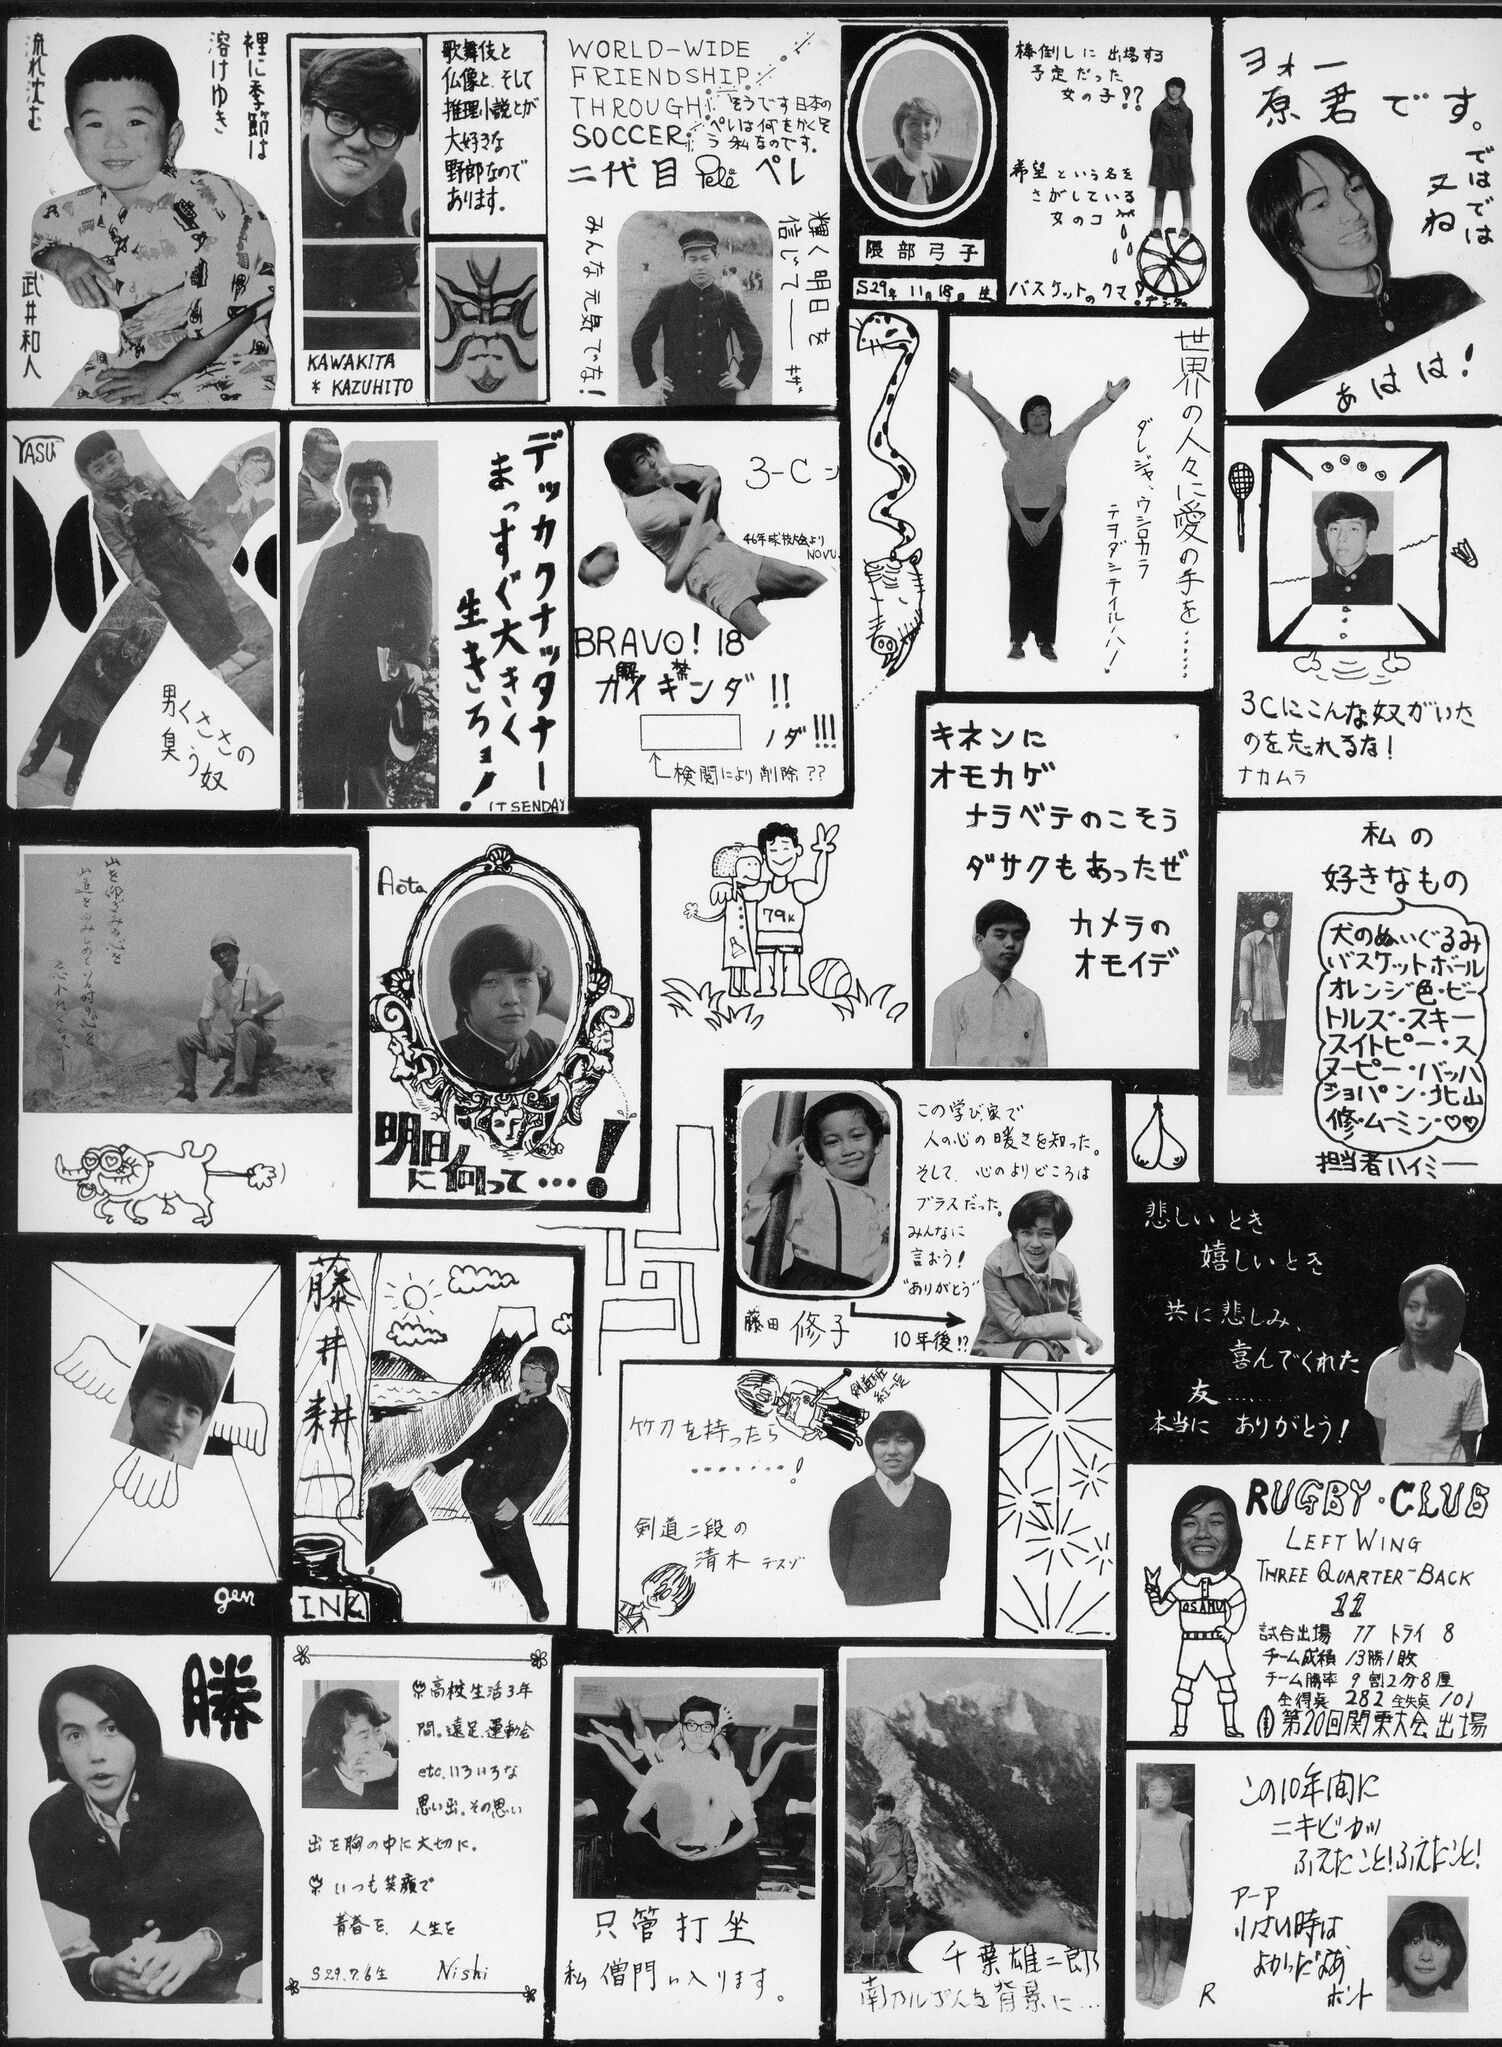 裡に季節は
溶けゆき
流れ沈む
武井和人
KAWAKITA
* KAZUHITO
歌舞伎と
仏像と、そして
推理小説とが
大好きな
野郎なので
あります。
WORLD-WIDE
FRIENDSHIP
THROUGH
SOCCER
そうです日本の
ぺレは何をかくそ
う私なのです。
二代目 Pelé ペレ
輝く明日を
信じて――
みんな元気でな!
隈部弓子
S29年11月18日生
棒倒しに出場する
予定だった
女の子??
希望という名を
さがしている
女のコ
バスケットのクマ!
ヨォー
原君です。
ではでは
又ね
あはは!
YASU
男くささの
臭う奴
デッカクナッタナー
まっすぐ大きく
生きろヨ!
(T SENDA)
3-C
46年球技大会より
NOVU.
BRAVO! 18
解禁
カイキンダ!!
ノダ!!!
検閲により削除??
世界の人々に愛の手を……
ダレジャ、ウシロカラ
テヲダシテイルノハ!
3Cにこんな奴がいた
のを忘れるな!
ナカムラ
キネンに
オモカゲ
ナラベテのこそう
ダサクもあったぜ
カメラの
オモイデ
私の
好きなもの
犬のぬいぐるみ
バスケットボール
オレンジ色・ビー
トルズ・スキー
スイトピー・ス
ヌーピー・バッハ
ショパン・北山
修・ムーミン・♡♡
担当者ハイミー
Aota
明日
に向って…!
79K
この学び家で
人の心の暖さを知った。
そして、心のよりどころは
ブラスだった。
みんなに
言おう!
"ありがとう"
藤田 修子
10年後!?
悲しいとき
嬉しいとき
共に悲しみ、
喜んでくれた
友……
本当に ありがとう!
gen
藤井耕一
INK
竹刀を持ったら
………!
剣道班
紅一点
剣道二段の
清木デスゾ
RUGBY・CLUB
LEFT WING
THREE QUARTER-BACK
11
OSAMU
試合出場 77 トライ 8
チーム成績 13勝1敗
チーム勝率 9割2分8厘
全得点 282 全失点 101
第20回関東大会出場
勝
高校生活3年
間。遠足、運動会
etc.いろいろな
思い出。その思い
出を胸の中に大切に。
いつも笑顔で
青春を、人生を
S29.7.6生 Nishi
只管打坐
私僧門に入ります。
千葉雄二郎
南アルプスを背景に…
この10年間に
ニキビガ
ふえたこと!ふえたこと!
アーア
小さい時は
よかったなあ
ホント
R